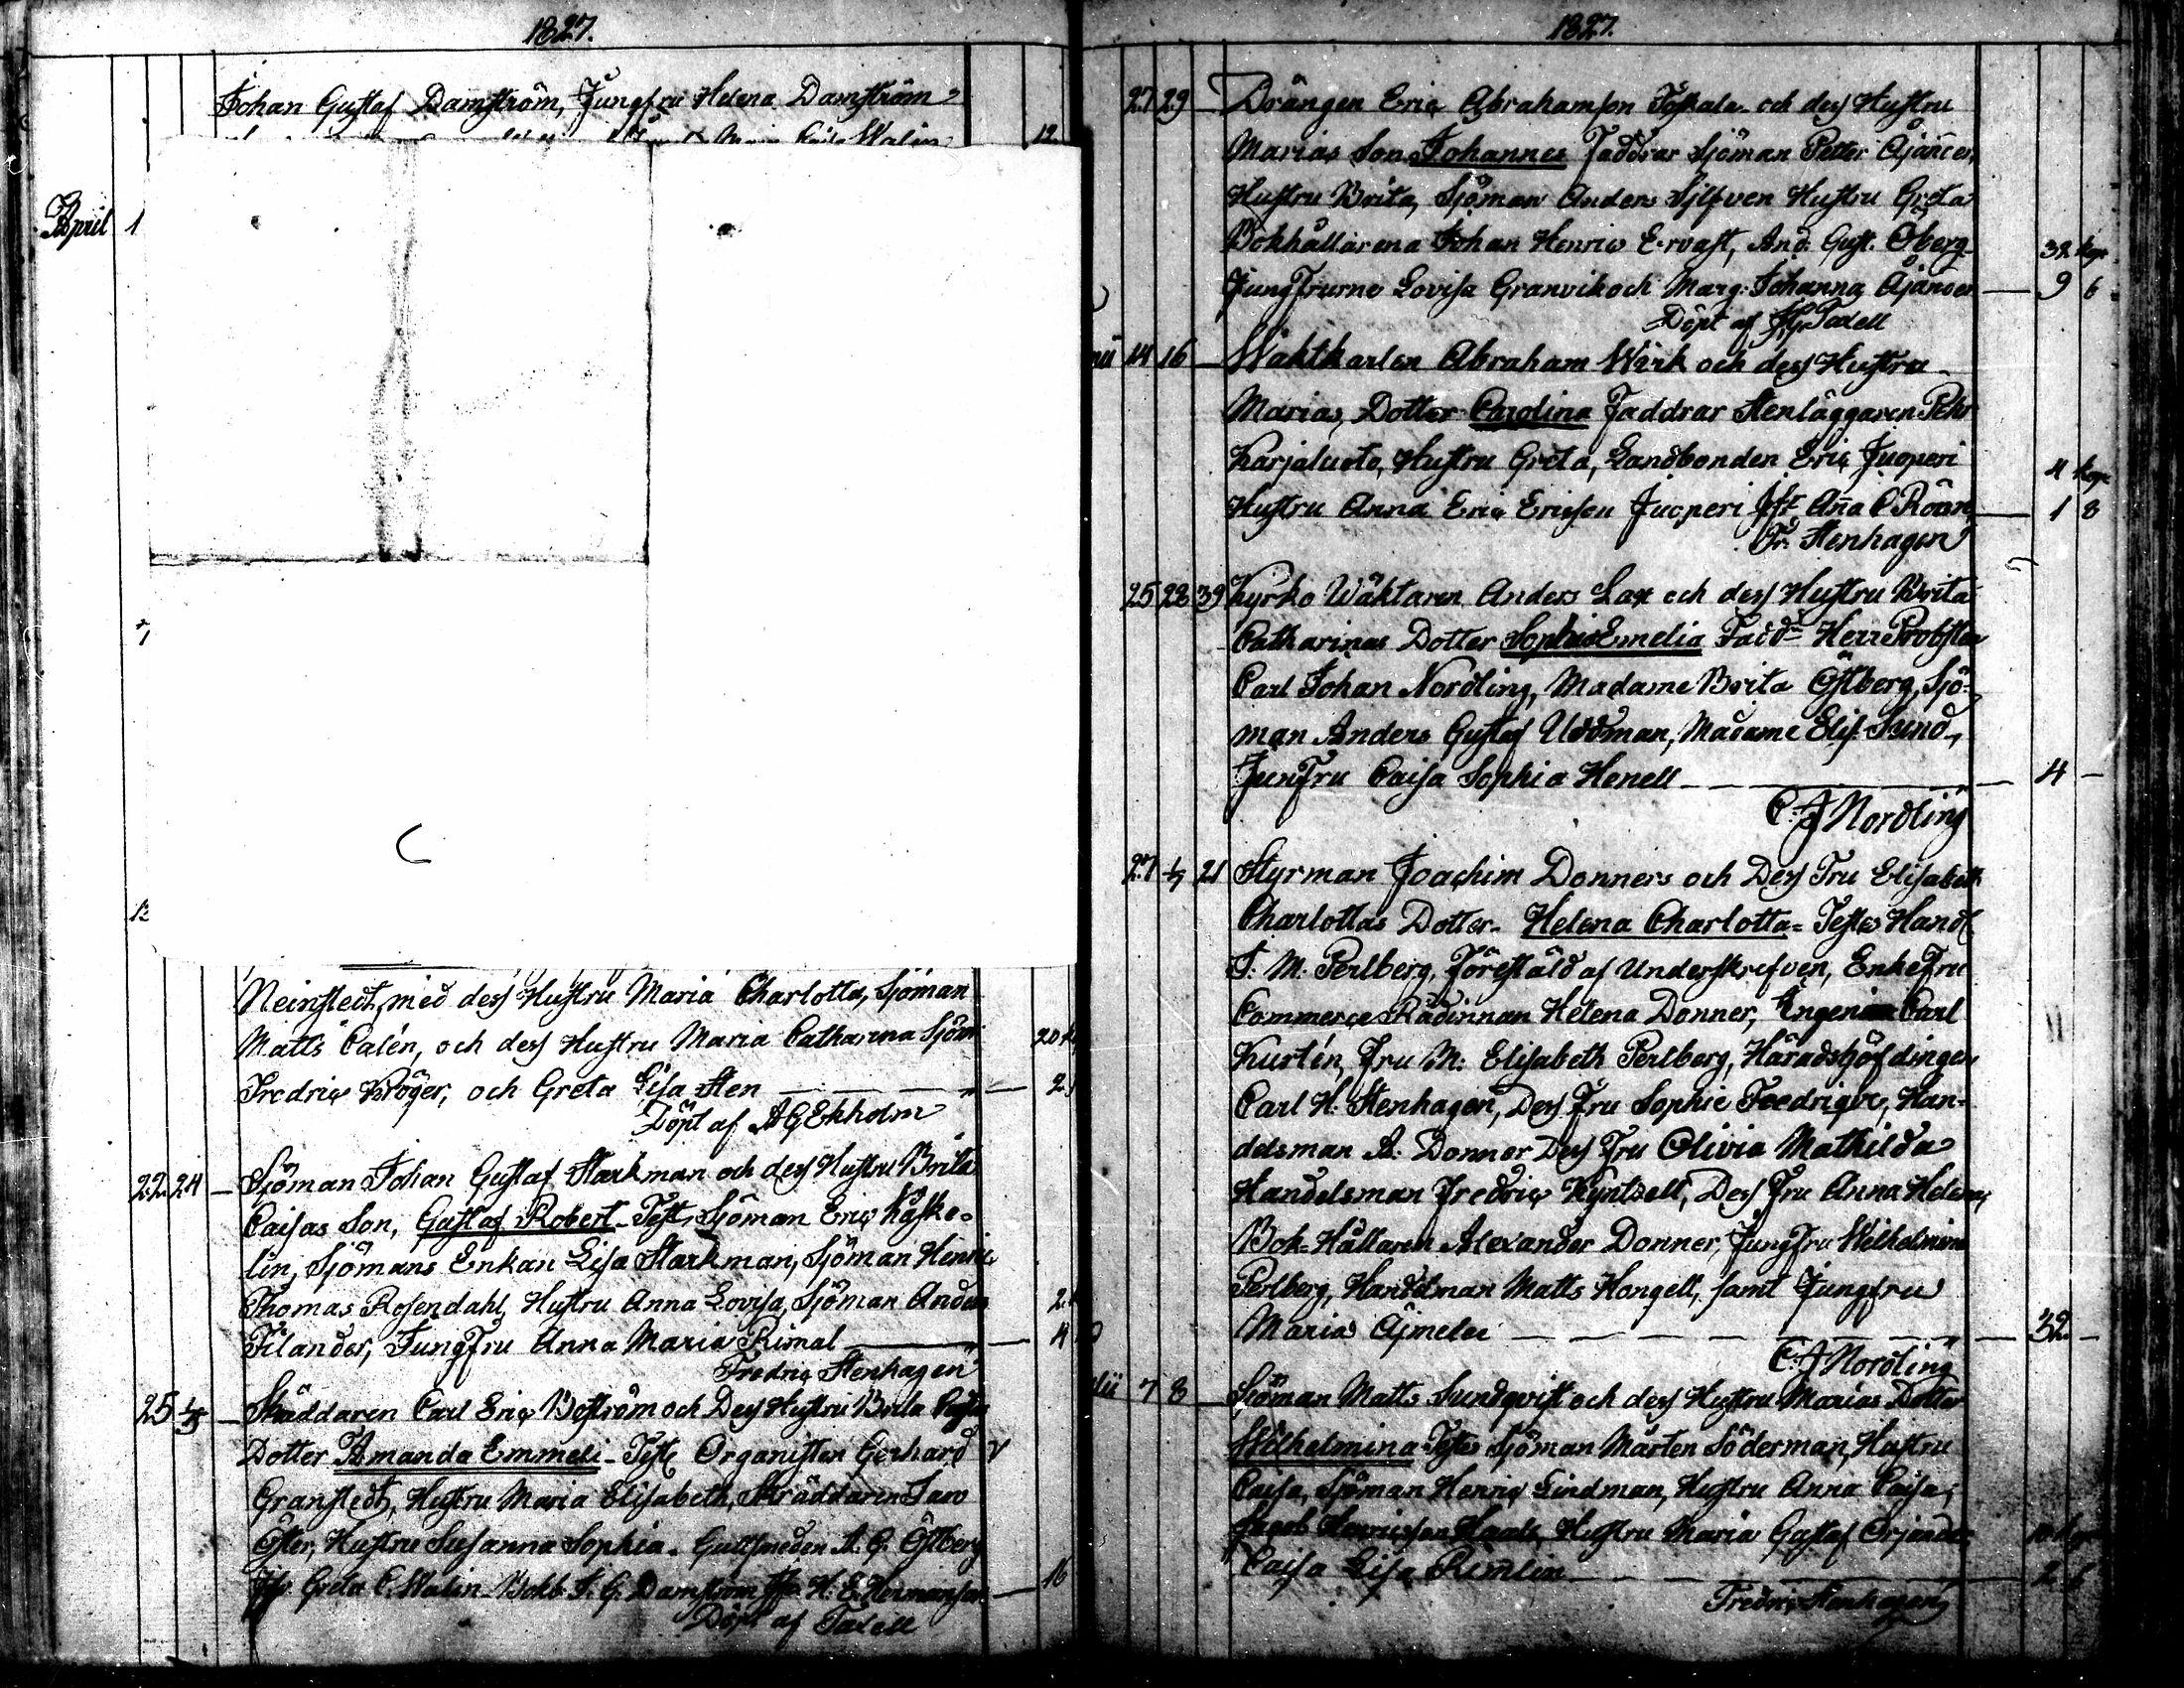 1827.
Johan Gustaf Damström, Jungfru Helena Damström
Walin 12
April 1
7
Neinstedt, med dess Hustru Maria Charlotta, Sjöman
Matts Calén, och dess Hustru Maria Catharina Sjöm 20
Fredric Kröger, och Greta Lisa Sten — 2
Döpt af A G Ekholm
22 24 — Sjöman Johan Gustaf Starkman och dess Hustru Brita
Caisas Son, Gustaf Robert — Test. Sjöman Eric Käske-
lin, Sjömans Enkan Lisa Starkman, Sjöman Henric
Thomas Rosendahl, Hustru Anna Lovisa, Sjöman Anders 2
Filander, Jungfru Anna Maria Rimal — 4
Fredric Stenhagen
25 1/5 — Skräddaren Carl Eric Boström och Dess Hustru Brita
Dotter Amanda Emmeli — Test Organisten Gerhard
Granstedt, Hustru Maria Elisabeth, Skräddaren
Öster, Hustru Susanna Sophia. Gullsmeden A. G. Östberg
Jfr. Greta C. Walin — Bokh. J. G. Damström Jfr. H. E. Hermanson — 16
Döpt af Tadell
1827.
27 29 — Drängen Eric Abrahamson och dess Hustru
Marias Son Johannes Faddrar Sjöman Petter
Hustru Brita, Sjöman Anders Sjlfven Hustru Greta
Bokhållarena Johan Henric Ervast, And. Gust. Öberg 32 kop.
Jungfrurne Lovisa Granvik och Marg: Johanna — 9 6
Döpt af Tadell
14 16 — Waktkarlen Abraham Wirk och dess Hustru
Marias, Dotter Carolina Faddrar Stenläggaren Pehr
Karjaluoto, Hustru Greta, Landbonden Eric Juoperi 4 kop.
Hustru Anna Eric Ericsson Juoperi Jfr Aña C — 1 8
Fr. Stenhagen
25 28 39 Kyrko Wäktaren Anders Lax och dess Hustru Brita
Catharinas Dotter Sophia Emelia Faddr Herr Probsten
Carl Johan Nordling, Madame Brita Östberg, Sjö-
man Anders Gustaf Uddman, Madame Elis. Sund,
Jungfru Caisa Sophia Henell — 4 —
C. J Nordling
27 1/7 21 Styrman Joachim Donners och Dess Fru Elisabeth
Charlottas Dotter — Helena Charlotta = Testes Handl
J. M. Perlberg, Förestäld af Underskrifven, Enke Fru
Commerce Rådinnan Helena Donner, Carl
Kurtén, Fru M: Elisabeth Perlberg, Häradshöfdingen
Carl H. Stenhagen, Dess Fru Sophie Fredrique, Han-
delsman A: Donner Dess Fru Olivia Mathilda
Handelsman Fredric Kyntzell, Dess Fru Anna Helena,
Bok-Hållaren Alexander Donner, Jungfru Wilhelmina
Perlberg, Handelman Matts Hongell, samt Jungfru
Maria Ajmelee — 32 —
C. J Nordling
7 8 — Sjöman Matts Sundqvist och dess Hustru Marias Dotter
Wilhelmina Testes Sjöman Mårten Söderman, Hustru
Caisa, Sjöman Henric Lindman, Hustru Anna Caisa,
Jacob Henricsson Hustru Maria Gustaf
Caisa Lisa Rimlin — 2 6
Fredric Stenhagen